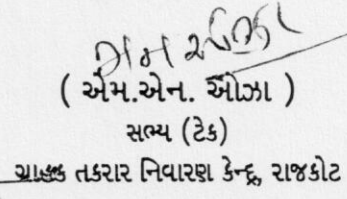 ( એમ.એન. ઓઝા )
સભ્ય (ટેક)
ગ્રાહક તકરાર નિવારણ કેન્દ્ર, રાજકોટ